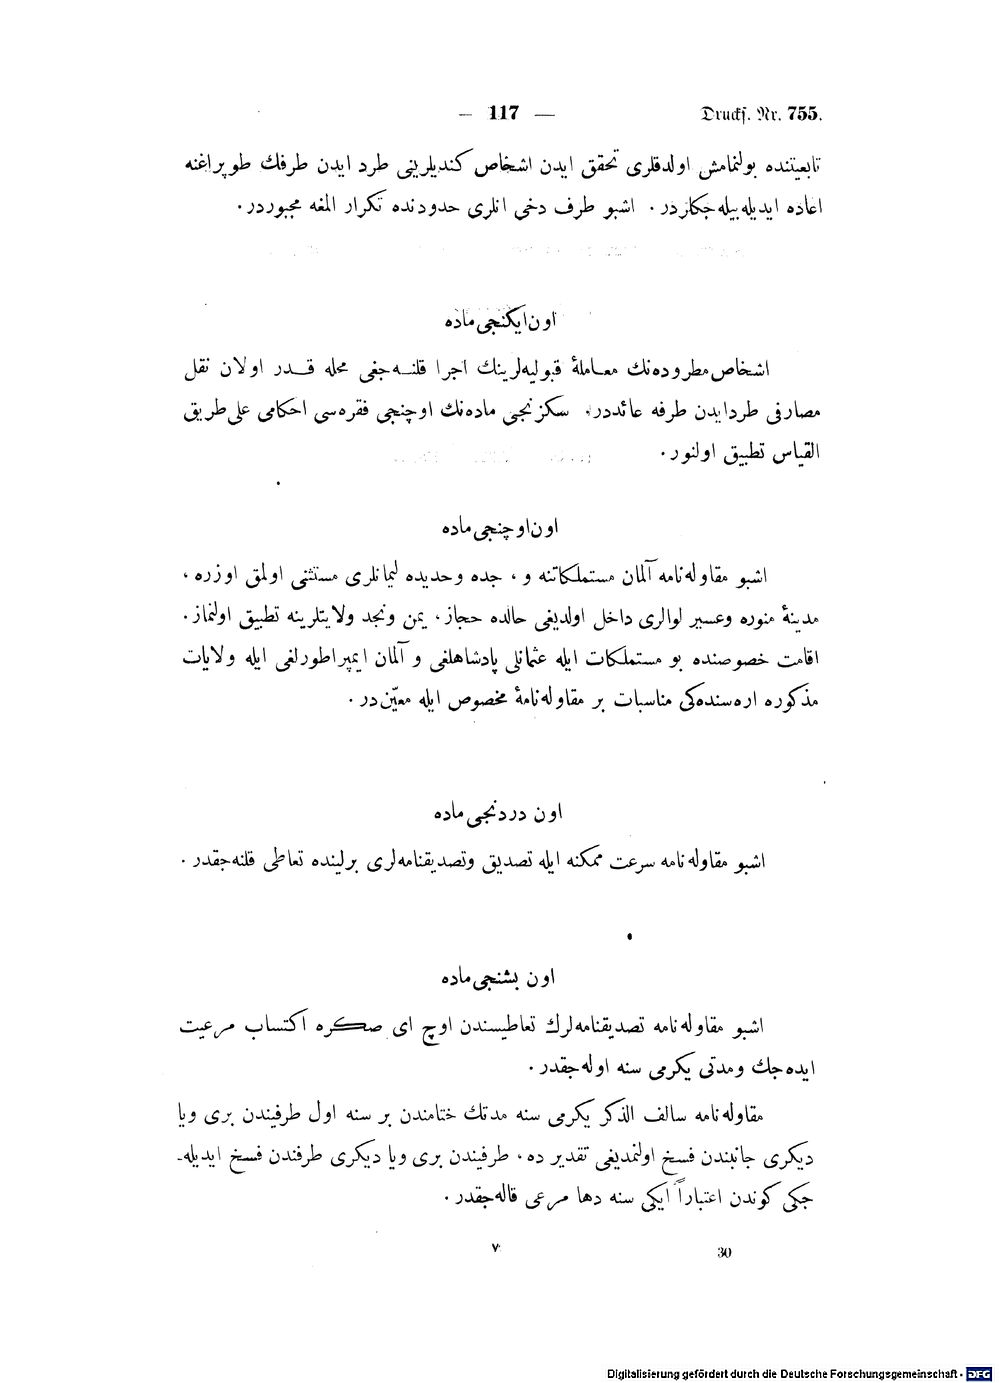 — 117 —
Drucks. Nr. 755.
تابعیتنده بولنمامش اولدقلری تحقق ایدن اشخاص کندیلرینی طرد ایدن طرفك طوپراغنه
اعاده ایدیله‌بیله‌جکلزدر. اشبو طرف دخی انلری حدودنده تکرار المغه مجبوردر.
اون‌ایکنجی ماده
اشخاص مطروده‌نك معاملهٔ قبولیه‌لرینك اجرا قلنه‌جغی محله قدر اولان نقل
مصارفی طردایدن طرفه عائددر. سکزنجی ماده‌نك اوچنجی فقره‌سی احکامی علی‌طریق
القیاس تطبیق اولنور.
اون‌اوچنجی ماده
اشبو مقاوله‌نامه آلمان مستملکاتنه و، جده وحدیده لیمانلری مستثنی اولمق اوزره،
مدینهٔ منوره وعسیر لوالری داخل اولدیغی حالده حجاز، یمن ونجد ولایتلرینه تطبیق اولنماز.
اقامت خصوصنده بو مستملکات ایله عثمانلی پادشاهلغی و آلمان ایمپراطورلغی ایله ولایات
مذکوره اره‌سنده‌کی مناسبات بر مقاوله‌نامهٔ مخصوص ایله معیّن‌در.
اون دردنجی ماده
اشبو مقاوله‌نامه سرعت ممکنه ایله تصدیق وتصدیقنامه‌لری برلینده تعاطی قلنه‌جقدر.
اون بشنجی ماده
اشبو مقاوله‌نامه تصدیقنامه‌لرك تعاطیسندن اوچ ای صکره اکتساب مرعیت
ایده‌جك ومدتی یکرمی سنه اوله‌جقدر.
مقاوله‌نامه سالف الذکر یکرمی سنه مدتك ختامندن بر سنه اول طرفیندن بری ویا
دیکری جانبندن فسخ اولنمدیغی تقدیر ده، طرفیندن بری ویا دیکری طرفندن فسخ ایدیله‌ـ
جکی کوندن اعتباراً ایکی سنه دها مرعی قاله‌جقدر.
٧
30
Digitalisierung gefördert durch die Deutsche Forschungsgemeinschaft - DFG